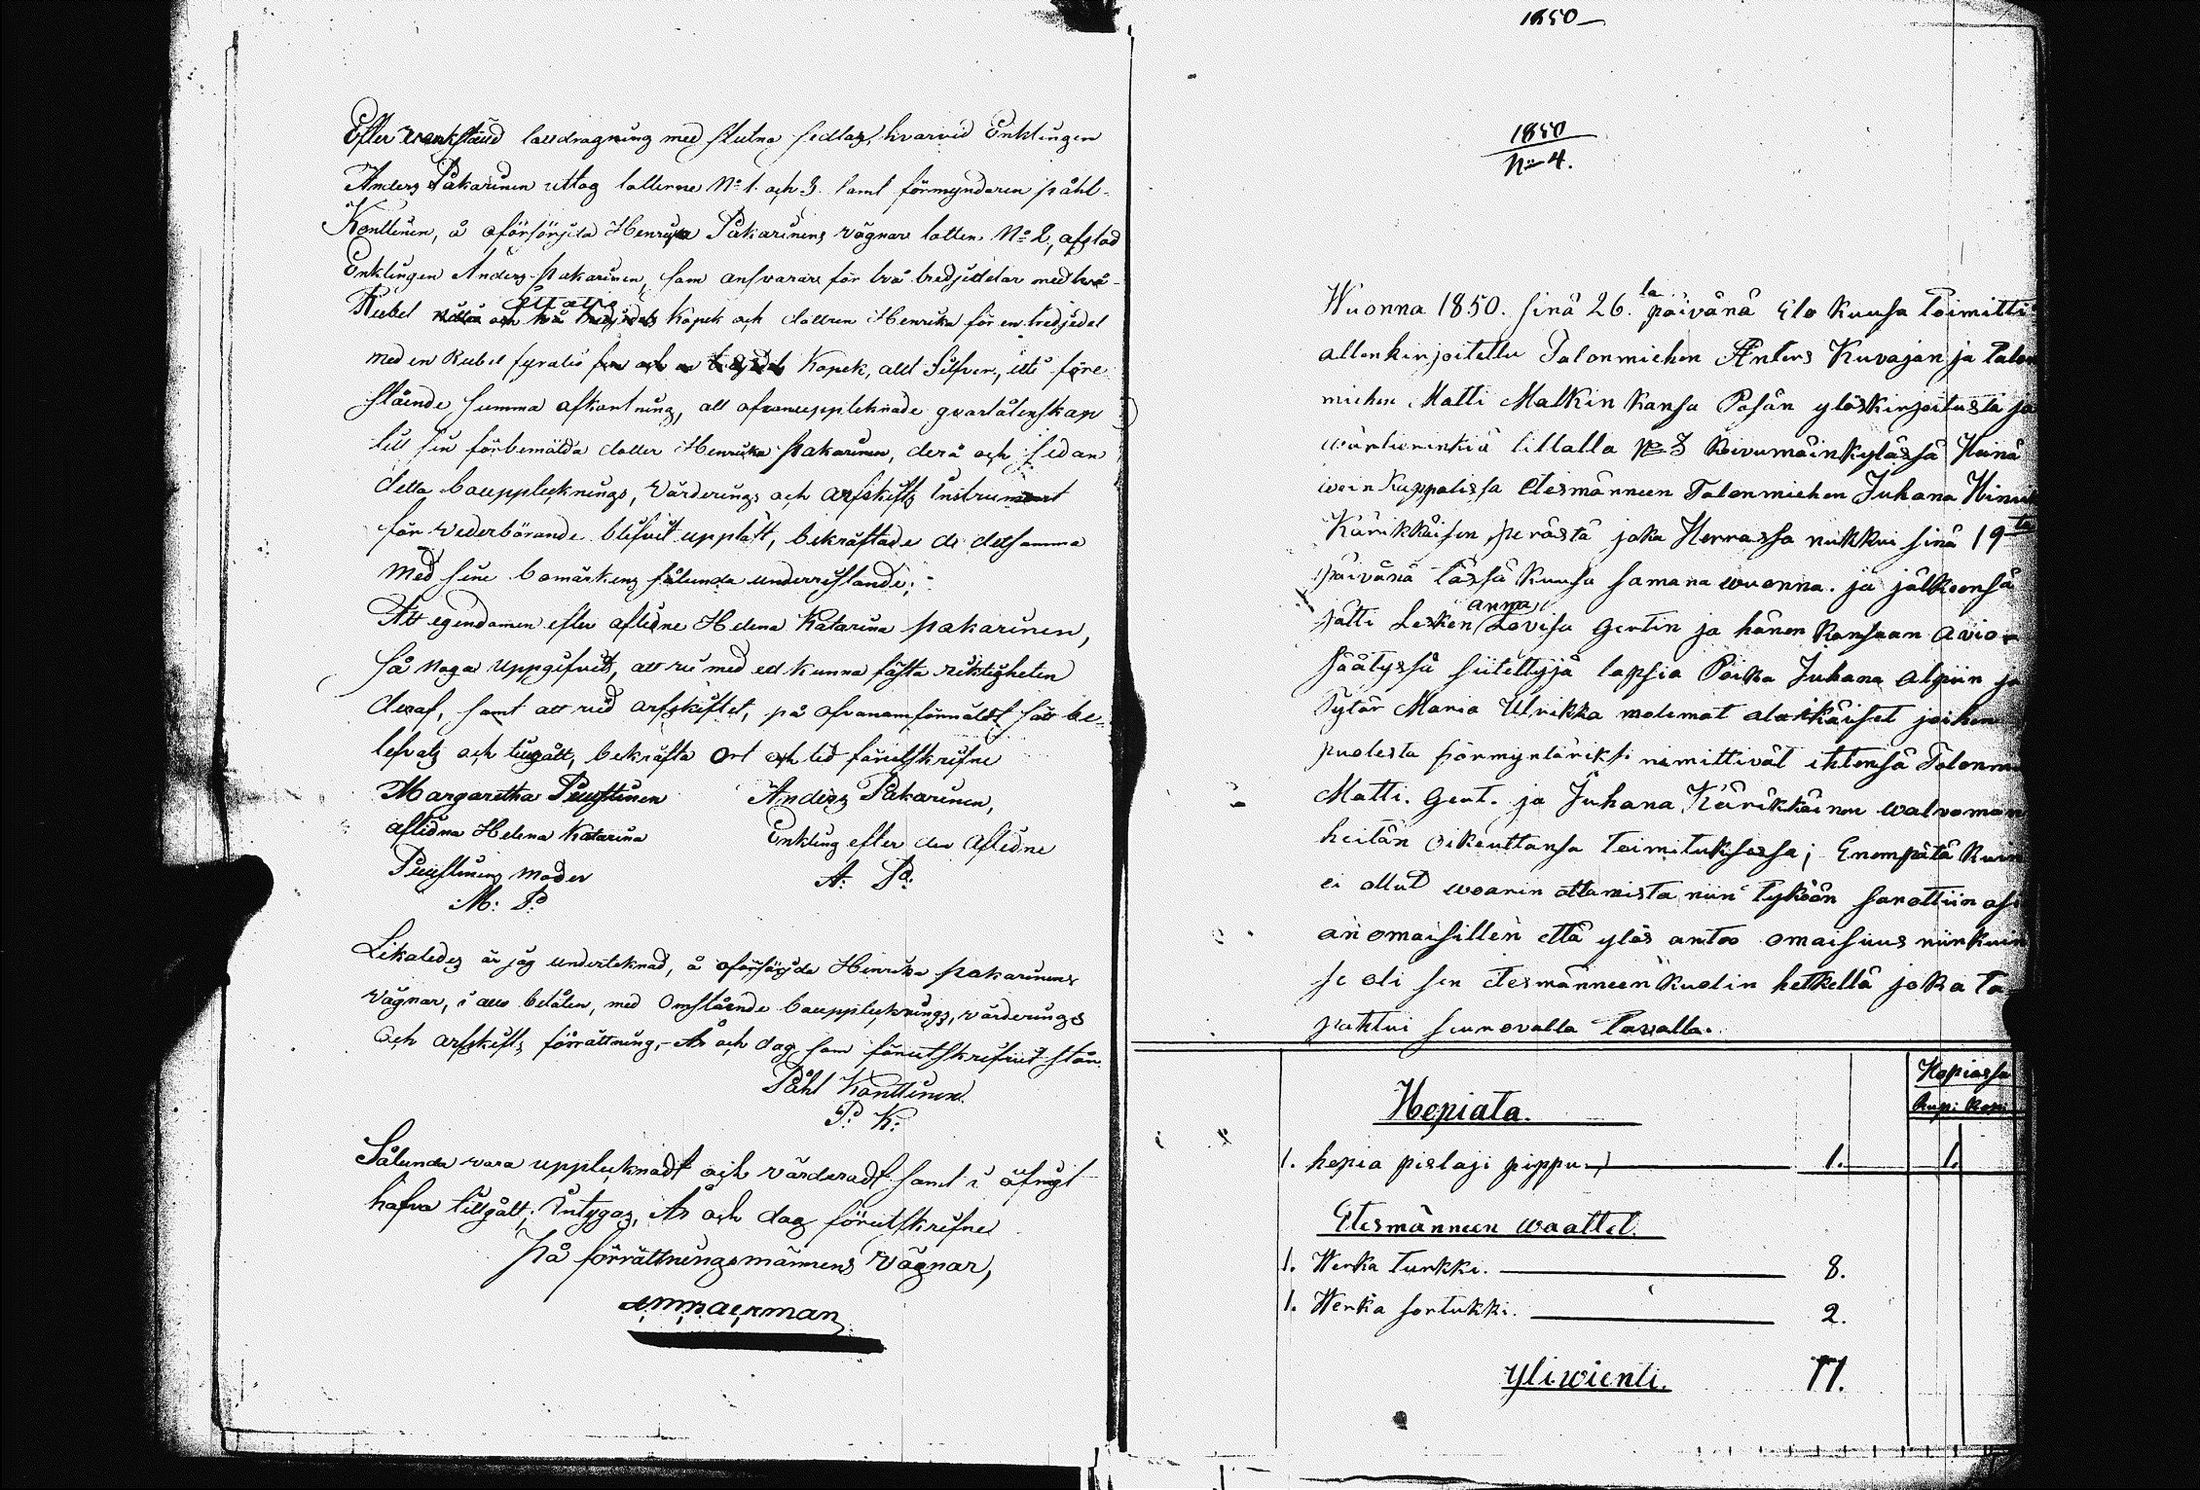 Efter verkstäld lottdragning med slutna sedlar, hvarvid Enklingen
Anders Pakarinen uttog lotterne No 1. och 3. samt förmyndaren påhl
Konttinen, å oförsörjda Henrika Pakarinens vägnar lotten No 2, afstod
Enklingen Anders Pakarinen, som ansvarar för två tredjedelar med två
Rubel åttatio Kopek och dottren Henrika för en tredjedel
med en Rubel fyratio Kopek, allt Silfver, till före
stående summa afkortning, all ofvanupptecknade qvarlåtenskap
till sin förbemälda dotter Henrika Pakarinen, derå och sedan
detta bouppteknings, Värderings och Arfskifts Instrument
för vederbörande blifvit uppläst, bekräftade de detsamma
med sine bomärkens sålunda underristande:
Att egendomen efter aflidne Helena Katarina Pakarinen,
så noga uppgifvits, att vi med ed kunna fästa riktigheten
deraf, samt att vid arfskiftet, på ofvananförmäldt sätt be-
lefvats och tillgått, bekräfta Ort och tid förutskrifne
Margaretha Puustinen Anders Pakarinen,
aflidna Helena Katarina Enkling efter den Aflidne
Puustinens moder A: P:
M: P:
Likaledes är jag undertecknad, å oförsörjda Henrika Pakarinens
vägnar, i allo belåten, med Omstående bouppteknings, värderings
och arfskifts förrättning, År och dag som förutskrifvit står.
Påhl Konttinen
P: K:
Sålunda vara upptecknadt och värderadt samt i öfrigt
hafva tillgått; Intygas, År och dag förutskrifne
På förrättningsmännens vägnar,
1850
1850
No 4.
Wuonna 1850. sinä 26.ta päivänä Elo kuusa toimitti
allenkirjoitettu Talonmiehen Anters Kuvajan ja talon
miehen Matti Malkin kansa Pesän ylöskirjoitusta ja
wärteerinkiä tillalla No 3 Koivumäinkylässä Heinä
wein Kappalissa Etesmänneen Talonmiehen Juhana Hinrik
Kärikkäisen perästä joka Herrassa nukkui sinä 19ta
päivänä tässä kuusa samana wuonna. ja jälkeensä
jätti Lesken anna Lovisa Gertin ja hänen kansaan avio
säätyssä siitettyjä lapsia Poika Juhana Alpiin ja
Tytär Maria Ulrikka molemat alaikäiset joiden
puolestaförmyntäriksi nimittivät ihtensä Talonm
Matti. Gert. ja Juhana Kärikkäinen walvoman
heitän oikeuttansa toimituksessa; Enempätä kuin
ei ollut waarin ottamista niin tyköän sanottiin asi
an omaisillen että ylös antoo omaisuus niinkuin
se oli sen etesmänneen kuolin hetkellä joka ta
pahtui seuraavalla tavalla.
Hopiassa
Rup: Kop:
Hopiata.
1. hopia pislaji pippu 1. 1.
Etesmänneen waattet.
1. Werka turkki. 8.
1. Werka sortukki. 2.
Yliwienti. 11.